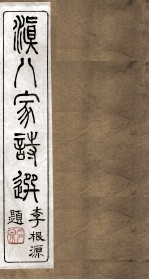 滇八家詩選
李根源題